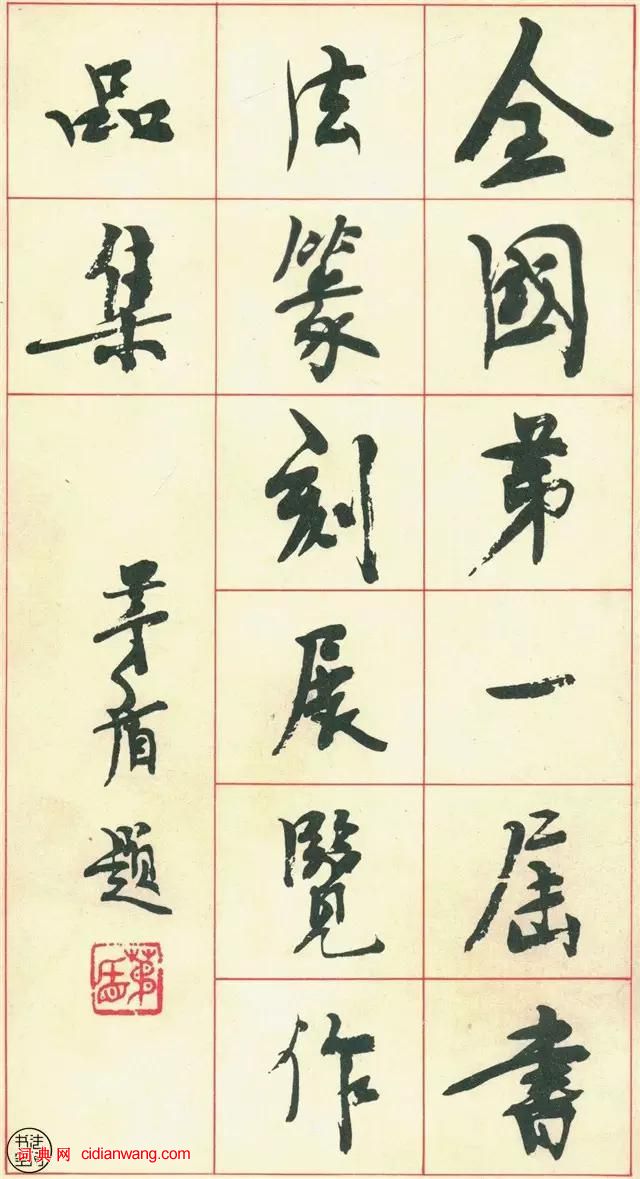 全國第一屆書
法篆刻展覽作
品集
茅盾題
茅盾
书法空间
词典网 cidianwang.com